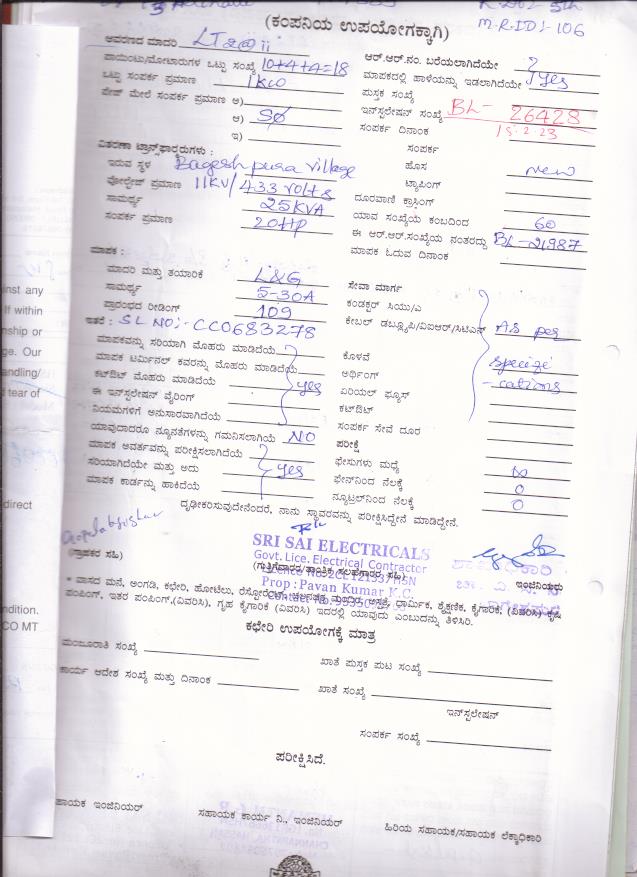 M-R-IDI-106
(ಕಂಪನಿಯ ಉಪಯೋಗಕ್ಕಾಗಿ)
ಆವರಣದ ಮಾದರಿ LT2aii ಆರ್.ಆರ್.ನಂ. ಬರೆಯಲಾಗಿದೆಯೇ
ಪಾಯಿಂಟು/ಮೋಟಾರುಗಳ ಒಟ್ಟು ಸಂಖ್ಯೆ 10+4+4=18 ಮಾಪಕದಲ್ಲಿ ಹಾಳೆಯನ್ನು ಇಡಲಾಗಿದೆಯೇ yes
ಒಟ್ಟು ಸಂಪರ್ಕ ಪ್ರಮಾಣ 1KW ಪುಸ್ತಕ ಸಂಖ್ಯೆ
ಪೇಜ್ ಮೇಲೆ ಸಂಪರ್ಕ ಪ್ರಮಾಣ ಅ) ಇನ್‌ಸ್ಟಲೇಷನ್ ಸಂಖ್ಯೆ BL- 26428
ಆ) SØ ಸಂಪರ್ಕ ದಿನಾಂಕ 15.2.23
ಇ) ಸಂಪರ್ಕ
ವಿತರಣಾ ಟ್ರಾನ್ಸ್‌ಫಾರ್ಮರುಗಳು : ಹೊಸ New
ಇರುವ ಸ್ಥಳ Bageshpura village ಟ್ಯಾಪಿಂಗ್
ವೋಲ್ಟೇಜ್ ಪ್ರಮಾಣ 11KV/433 volts ದೂರವಾಣಿ ಕ್ರಾಸಿಂಗ್
ಸಾಮರ್ಥ್ಯ 25KVA ಯಾವ ಸಂಖ್ಯೆಯ ಕಂಬದಿಂದ 60
ಸಂಪರ್ಕ ಪ್ರಮಾಣ 20HP ಈ ಆರ್.ಆರ್.ಸಂಖ್ಯೆಯ ನಂತರದ್ದು BL-21987
ಮಾಪಕ ಓದುವ ದಿನಾಂಕ
ಮಾಪಕ :
ಮಾದರಿ ಮತ್ತು ತಯಾರಿಕೆ L&G ಸೇವಾ ಮಾರ್ಗ
ಸಾಮರ್ಥ್ಯ 5-30A ಕಂಡಕ್ಟರ್ ಸಿಯು/ಎ
ಪ್ರಾರಂಭದ ರೀಡಿಂಗ್ 109 ಕೇಬಲ್ ಡಬ್ಲ್ಯೂಪಿ/ವಿಐಆರ್/ಸಿಟಿಎಸ್ As per
ಇತರೆ : SL NO:- CC0683278
ಮಾಪಕವನ್ನು ಸರಿಯಾಗಿ ಮೊಹರು ಮಾಡಿದೆಯೆ ಕೊಳವೆ specizi
ಮಾಪಕ ಟರ್ಮಿನಲ್ ಕವರನ್ನು ಮೊಹರು ಮಾಡಿದೆಯೆ ಅರ್ಥಿಂಗ್ -cations
ಕಟ್‌ಔಟ್ ಮೊಹರು ಮಾಡಿದೆಯೆ yes ಏರಿಯಲ್ ಫ್ಯೂಸ್
ಈ ಇನ್‌ಸ್ಟಲೇಷನ್ ವೈರಿಂಗ್ ಕಟ್‌ಔಟ್
ನಿಯಮಗಳಿಗೆ ಅನುಸಾರವಾಗಿದೆಯೆ ಸಂಪರ್ಕ ಸೇವೆ ದೂರ
ಯಾವುದಾದರೂ ನ್ಯೂನತೆಗಳನ್ನು ಗಮನಿಸಲಾಗಿಯೆ NO ಪರೀಕ್ಷೆ
ಮಾಪಕ ಅವರ್ತವನ್ನು ಪರೀಕ್ಷಿಸಲಾಗಿದೆಯೆ ಫೇಸುಗಳು ಮಧ್ಯೆ ∞
ಸರಿಯಾಗಿದೆಯೇ ಮತ್ತು ಅದು yes ಫೇಸ್‌ನಿಂದ ನೆಲಕ್ಕೆ 0
ಮಾಪಕ ಕಾರ್ಡನ್ನು ಹಾಕಿದೆಯೆ ನ್ಯೂಟ್ರಲ್‌ನಿಂದ ನೆಲಕ್ಕೆ 0
ದೃಢೀಕರಿಸುವುದೇನೆಂದರೆ, ನಾನು ಸ್ಥಾವರವನ್ನು ಪರೀಕ್ಷಿಸಿದ್ದೇನೆ ಮಾಡಿದ್ದೇನೆ.
SRI SAI ELECTRICALS
Govt. Lice. Electrical Contractor
(ಗ್ರಾಹಕರ ಸಹಿ) (ಗುತ್ತಿಗೆದಾರರ/ತಾಂತ್ರಿಕ ಸಲಹೆಗಾರರ ಸಹಿ) ಇಂಜಿನಿಯರು
Prop: Pavan Kumar K.C.
* ವಾಸದ ಮನೆ, ಅಂಗಡಿ, ಕಛೇರಿ, ಹೋಟೆಲು, ಧಾರ್ಮಿಕ, ಶೈಕ್ಷಣಿಕ, ಕೈಗಾರಿಕೆ, (ವಿವರಿಸಿ) ಕೃಷಿ
ಪಂಪಿಂಗ್, ಇತರ ಪಂಪಿಂಗ್,(ವಿವರಿಸಿ), ಗೃಹ ಕೈಗಾರಿಕೆ (ವಿವರಿಸಿ) ಇದರಲ್ಲಿ ಯಾವುದು ಎಂಬುದನ್ನು ತಿಳಿಸಿರಿ.
ಕಛೇರಿ ಉಪಯೋಗಕ್ಕೆ ಮಾತ್ರ
ಮಂಜೂರಾತಿ ಸಂಖ್ಯೆ ಖಾತೆ ಪುಸ್ತಕ ಪುಟ ಸಂಖ್ಯೆ
ಕಾರ್ಯ ಆದೇಶ ಸಂಖ್ಯೆ ಮತ್ತು ದಿನಾಂಕ ಖಾತೆ ಸಂಖ್ಯೆ
ಇನ್‌ಸ್ಟಲೇಷನ್
ಸಂಪರ್ಕ ಸಂಖ್ಯೆ
ಪರೀಕ್ಷಿಸಿದೆ.
ಸಹಾಯಕ ಕಾರ್ಯ ನಿ., ಇಂಜಿನಿಯರ್ ಹಿರಿಯ ಸಹಾಯಕ/ಸಹಾಯಕ ಲೆಕ್ಕಾಧಿಕಾರಿ
inst any
If within
nship or
ge. Our
andling/
tear of
direct
ndition.
CO MT